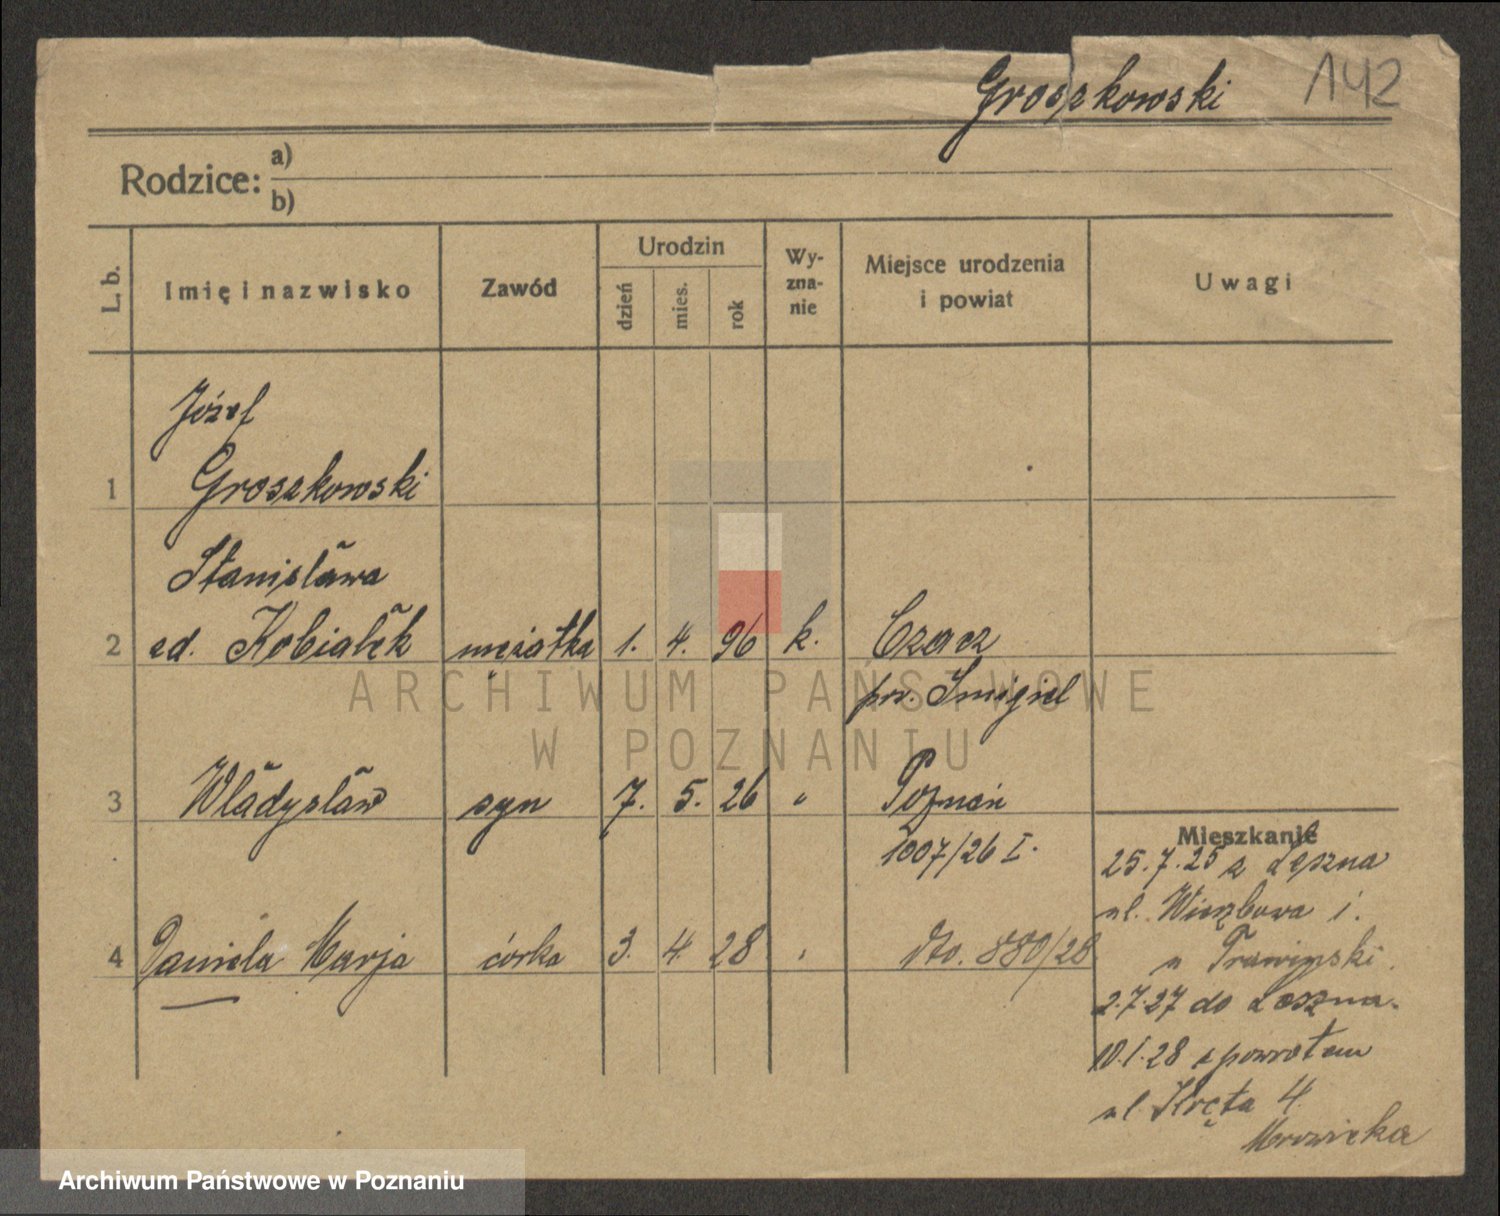 Groszkowski 142
Rodzice: a)
b)
L. b.
Imię i nazwisko
Zawód
Urodzin
dzień
mies.
rok
Wy-
zna-
nie
Miejsce urodzenia
i powiat
Uwagi
Józef
1 Groszkowski
Stanisława
2 zd. Kobiałek mężatka 1. 4. 96 k. Czacz
pow. Śmigiel
3 Władysław syn 7. 5. 26 " Poznań
1007/26 I.
4 Daniela Marja córka 3. 4. 28 " dto. 880/28
Mieszkanie
25.7.25 z Leszna
ul. Wierzbowa 1.
u Trawinski
2.7.27 do Leszna.
10.1.28 z powrotem
ul. Kręta 4
ARCHIWUM PAŃSTWOWE
W POZNANIU
Archiwum Państwowe w Poznaniu